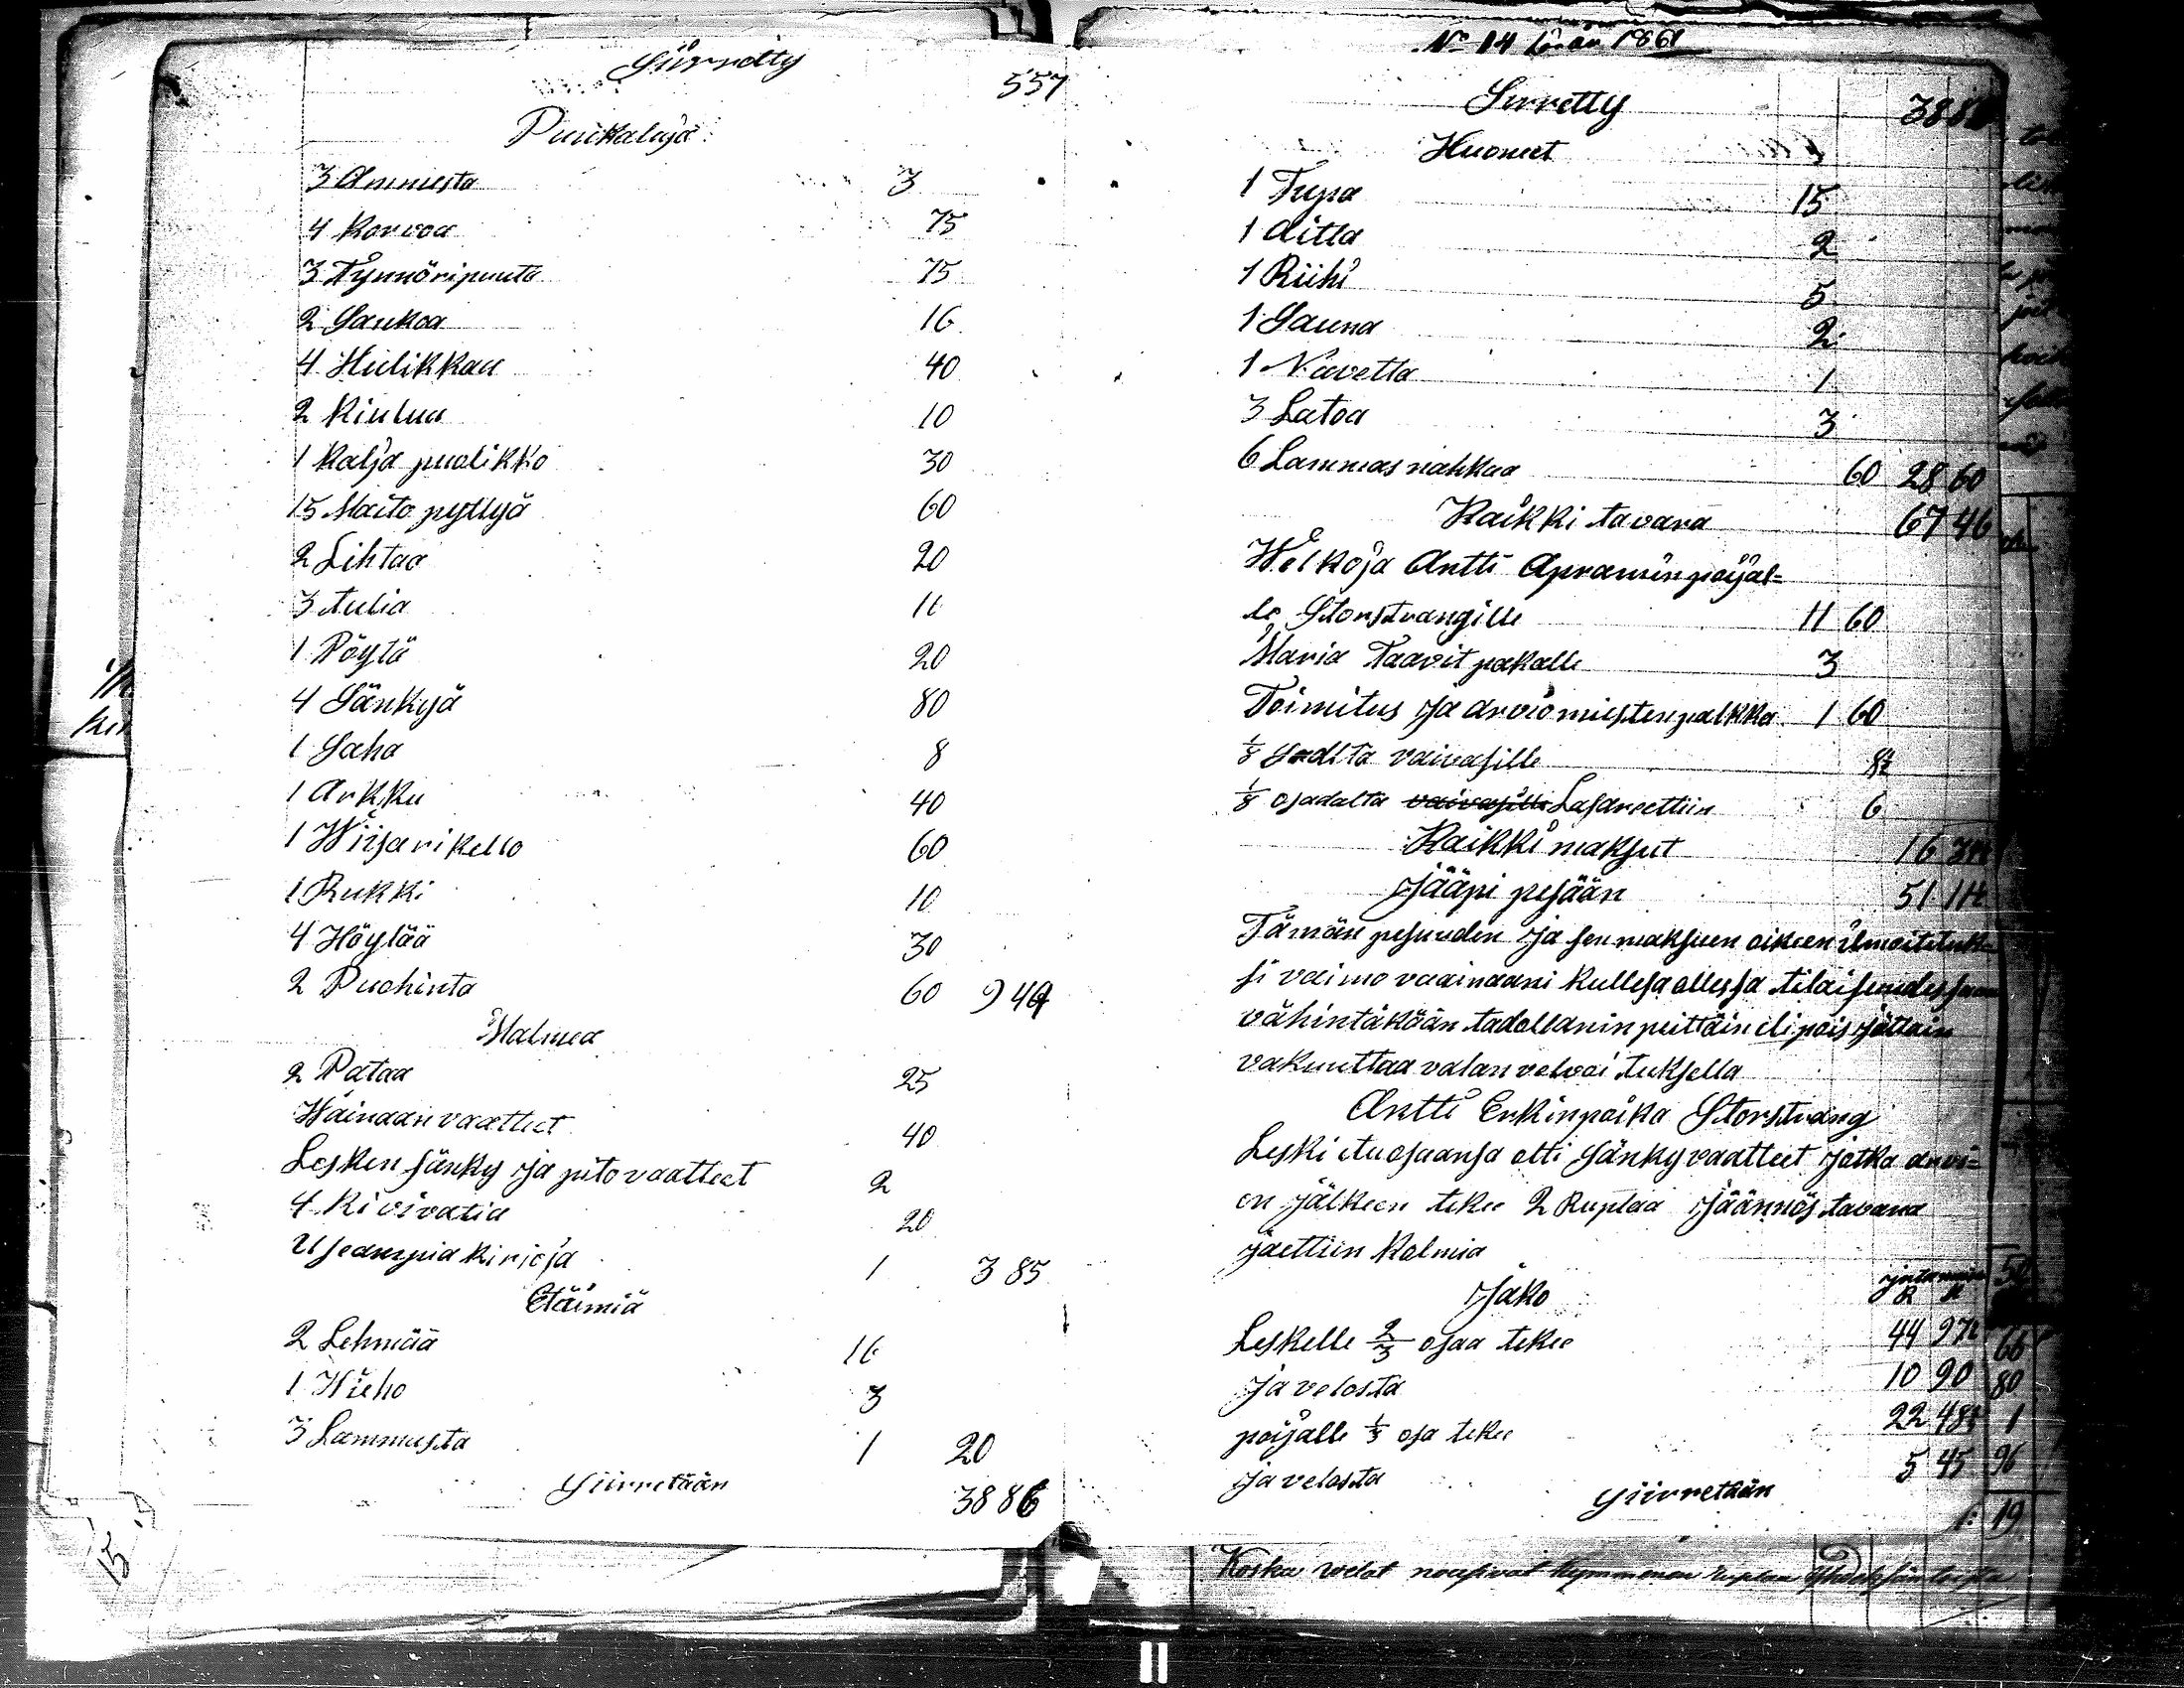 Siirretty
557
Puukaluja
3 Ammesta 3
4 Korvoa 75
3 Tynnöripuuta 75
2 Sankoa 16
4 Hulikkaa 40
2 Kiulua 10
1 Kalja puolikko 30
15 Maito pyttyä 60
2 Lihtaa 20
3 tulia 16
1 Pöytä 20
4 Sänkyä 80
1 Saha 8
1 Arkku 40
1 Wiisarikello 60
1 Rukki 10
4 Höylää 30
2 Puohinta 60 9 49
Malmea
2 Pataa 25
Wainaan vaatteet 40
Lesken sänky ja pito vaatteet 2
4 Kivivatia 20
Useampia kirjoja 1 3 85
Eläimiä
2 Lehmää 16
1 Wieho 3
3 Lammasta 1 20
Siirretään 38 86
No 14 för år 1861
Sirretty 38 86
Huoneet
1 Tupa 15
1 Aitta 2
1 Riihi 5
1 Sauna 2
1 Navetta 1
3 Latoa 3
6 Lammas nahkaa 60 28 60
Kaikki tavara 67 46
Welkoja Antti Apramin pojal=
le Storstrangille 11 60
Maria Taavit pakalle 3
Toimitus ja arvio miesten palkka 1 60
1/8 vaivasille 8½
1/8 osadalta vaivasille Lasareettiin 6
Kaikki maksut 16 34½
Jääpi pesään 51 11½
Tämän pesuuden ja sen maksuen oikeen ilmoitetuk=
si vaimo vaainaani kullesa ollessa tilaisuudessaan
vähintäkään tadollanin peittäin eli pois jättäin
vakuuttaa valan velvoituksella
Antti Erkinpoika Storstrang
Leski etuosaansa otti sänky vaatteet jotka arvi=
on jälkeen tekee 2 Ruplaa jäännös tavara
jaettiin kolmia
Jako
R K
Leskelle 2/3 osaa tekee 44 97½
ja velosta 10 90
pojalle 1/3 osa tekee 22 48½
ja velosta 5 45
Siirretään
Koska welat nousivat kymmenen ruplaa
15